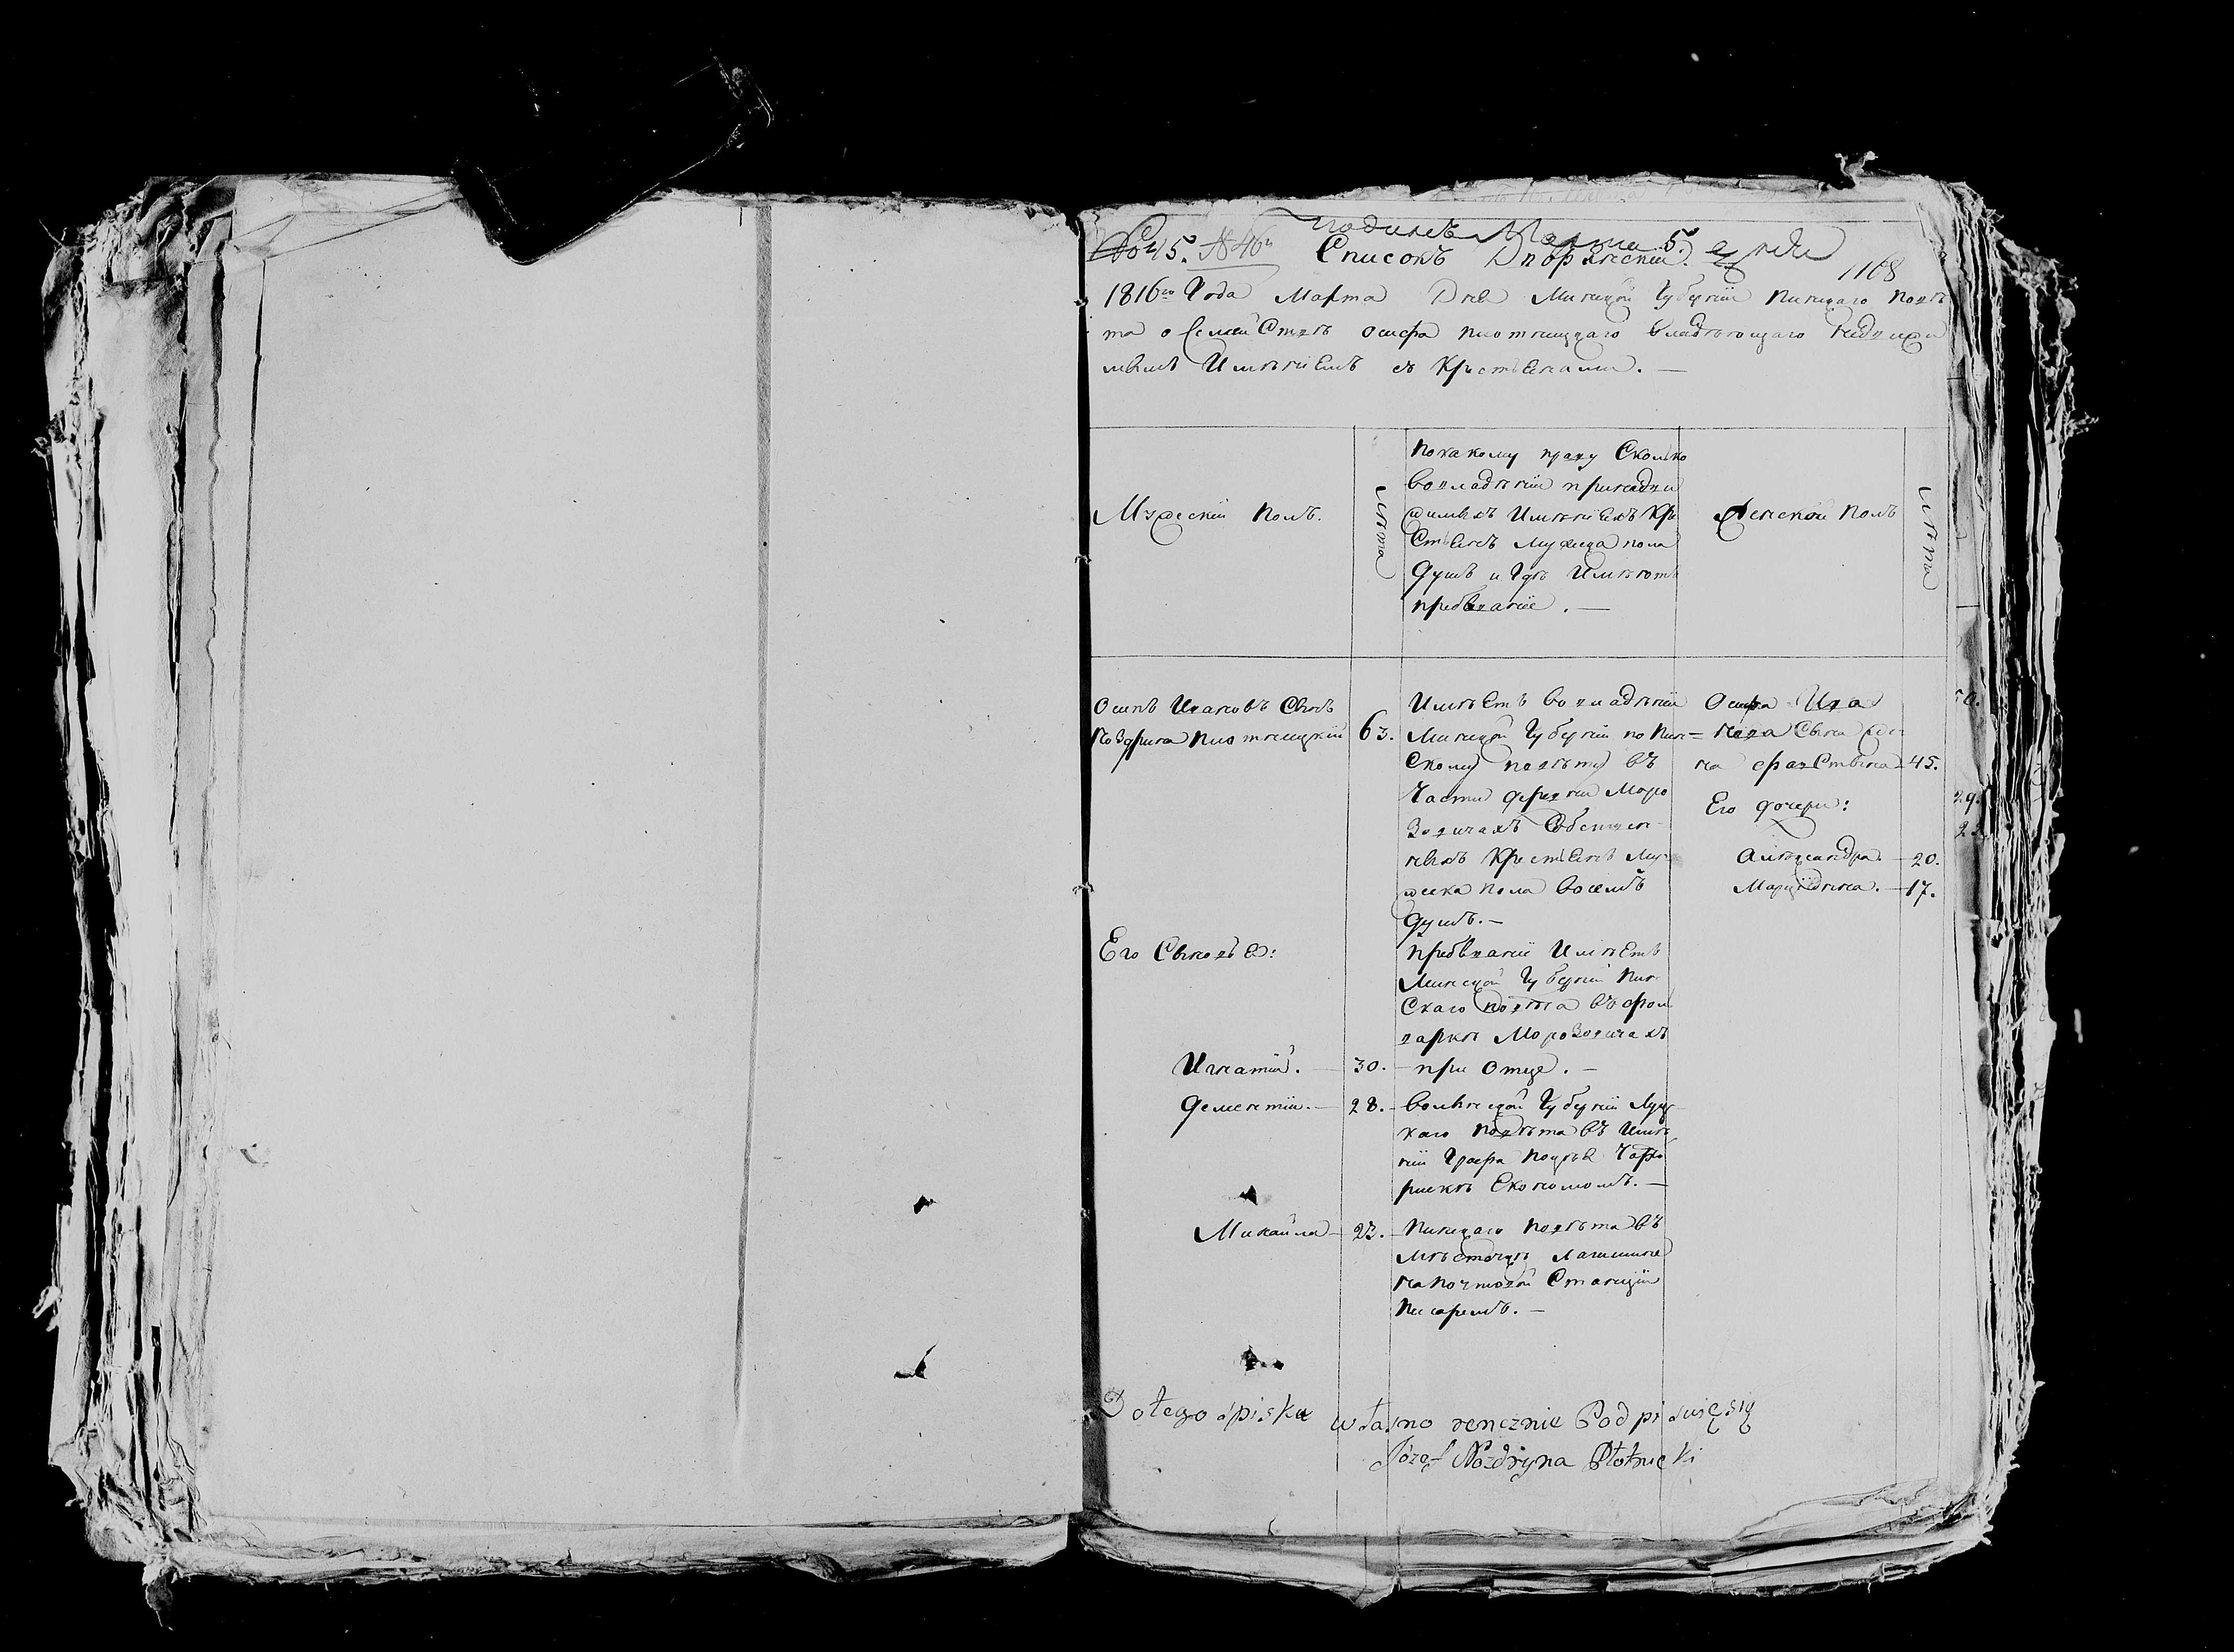 No 45. № 46й подилсь Марта 5. дня
Списокъ Дворянскій.
1168
1816го Года Марта Дня Минской Губерніи Пинскаго Повѣ
та о Семействѣ Осифа Плотницкаго владѣющаго Недвижи
мымъ Имѣніемъ съ Крестьенами. —
Мужескій Полъ.
Лѣта
Покакому праву Сколко
вовладѣніи принедви
жимыхъ Имѣніехъ Кре
Стьенъ мужеска пола
Душъ и Гдѣ Имѣютъ
пребываніе. —
Женской Полъ
Лѣта
Осипъ Ивановъ Сынъ
Ноздрина Плотницкій
63.
Имѣетъ вовладѣніи
Минской Губерніи по Пин=
Скому повѣту въ
Части Деревни Моро
Зовичахъ Собствен-
ныхъ Крестьенъ му-
жеска пола восемъ
Душъ. —
Осифа Ива
нова Сына Же-
на Франстына 45.
Его Дочери:
Алѣксандра. 20.
Марцѣлина. 17.
Его Сыновье:
пребываніе Имѣетъ
Минской Губерніи Пин-
Скаго повѣта въ фол
варкѣ Морозовичахъ
Игнатій. 30. — при Отце. —
Дементій. — 28. — Волынской Губерніи Луц-
каго Повѣта въ Имѣ
ніи Графа
Економомъ. —
Михайла — 22. — Пинскаго Повѣта въ
мѣстечкѣ Логишине
на почтовой Станціи
Писаремъ. —
Do tego spisku własno rencznie Podpisuię się
Józef Nozdryna Płotnicki